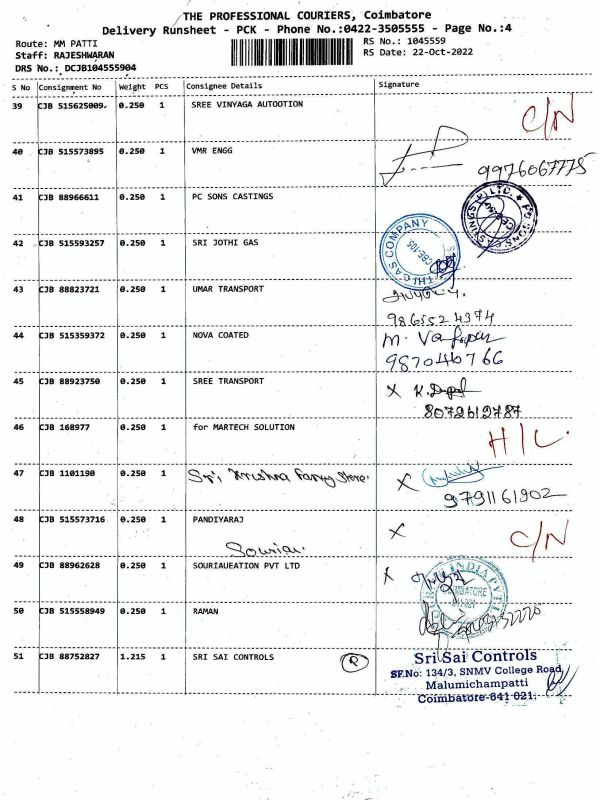 THE PROFESSIONAL COURIERS, Coimbatore
Delivery Runsheet - PCK - Phone No.:0422-3505555 - Page No.:4
Route: MM PATTI
RS No.: 1045559
Staff: RAJESHWARAN
RS Date: 22-Oct-2022
DRS No.: DCJB104555904
S No Consignment No Weight PCS Consignee Details Signature
39 CJB 515625009. 0.250 1 SREE VINYAGA AUTOOTION
C/N
40 CJB 515573895 0.250 1 VMR ENGG
9976067775
41 CJB 88966611 0.250 1 PC SONS CASTINGS
42 CJB 515593257 0.250 1 SRI JOTHI GAS
THI GAS COMPANY
CBE-105
43 CJB 88823721 0.250 1 UMAR TRANSPORT
9865524374
44 CJB 515359372 0.250 1 NOVA COATED
M.
9870440766
45 CJB 88923750 0.250 1 SREE TRANSPORT
X K.
8072612787
46 CJB 168977 0.250 1 for MARTECH SOLUTION
H/L.
47 CJB 1101190 0.250 1 Sri Krishna Fancy Store.
X
9791161902
48 CJB 515573716 0.250 1 PANDIYARAJ
X C/N
Souriau.
49 CJB 88962628 0.250 1 SOURIAUEATION PVT LTD
X
INDIA PVT L
COIMBATORE
641-021
50 CJB 515558949 0.250 1 RAMAN
51 CJB 88752827 1.215 1 SRI SAI CONTROLS R
Sri Sai Controls
SF.No: 134/3, SNMV College Road
Malumichampatti
Coimbatore-641 021.